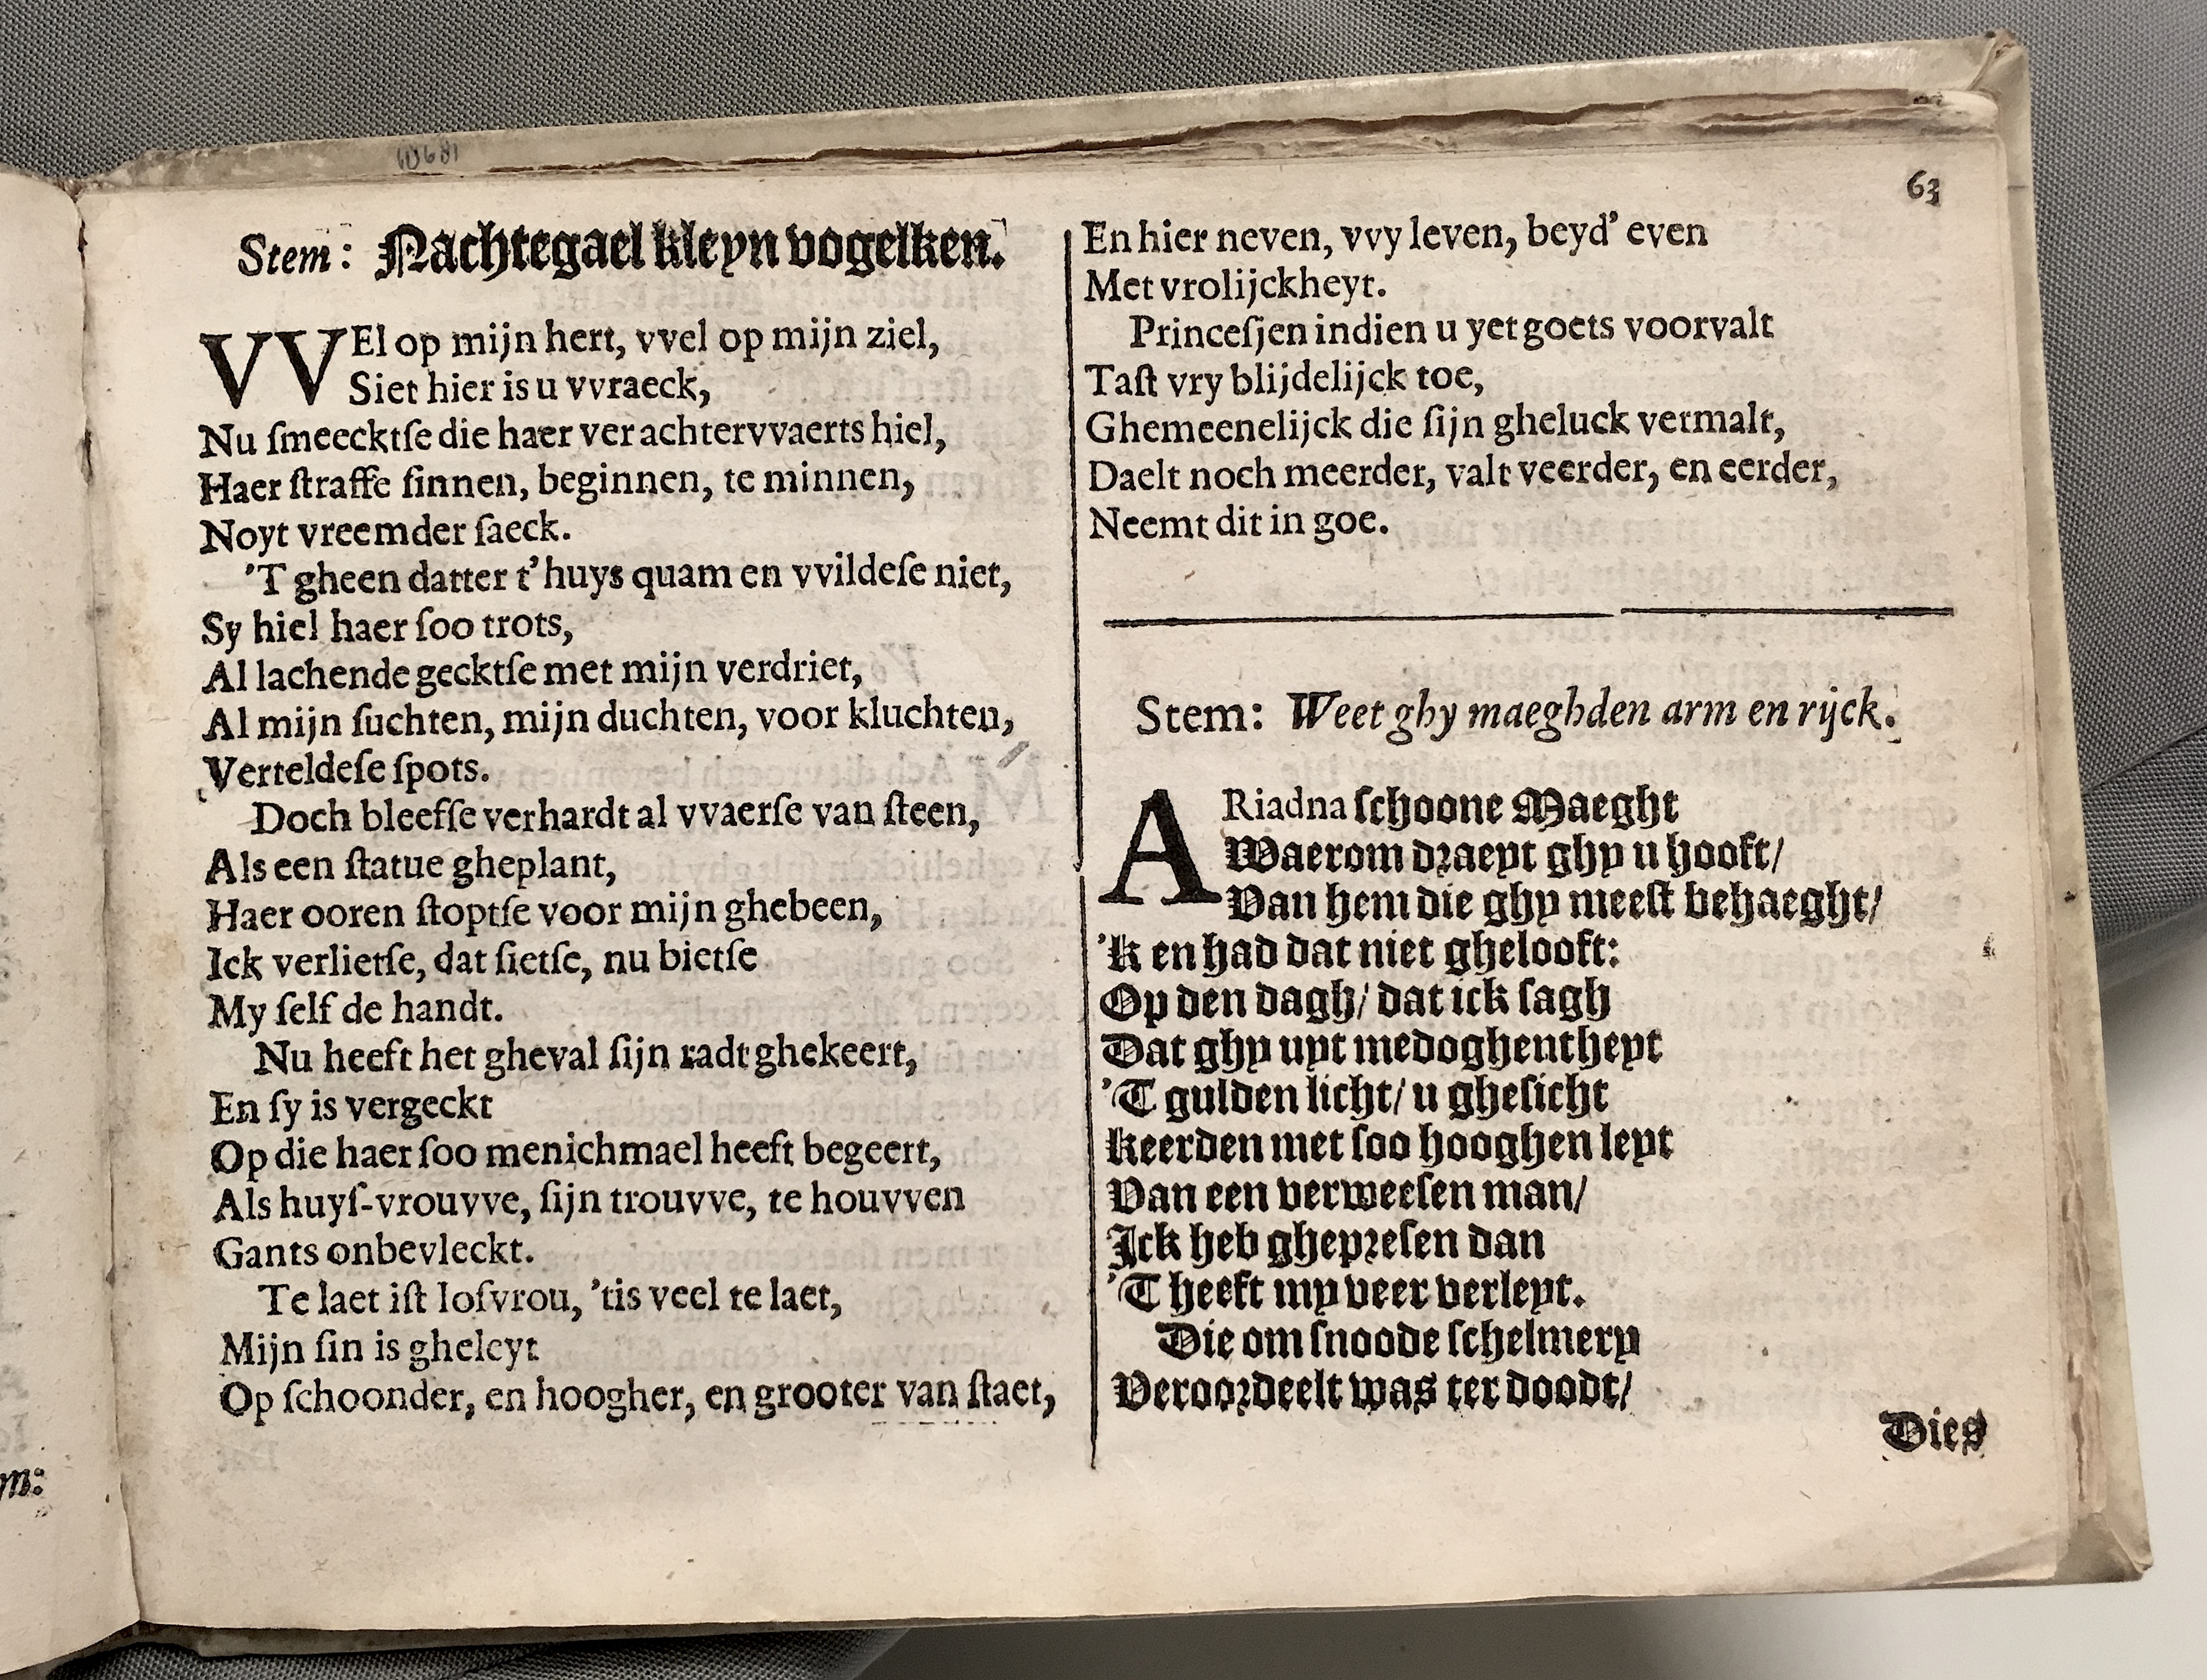 63
Stem: Nachtegael kleyn vogelken.
VVEl op mijn hert, vvel op mijn ziel,
Siet hier is u vvraeck,
Nu ſmeecktſe die haer ver achtervvaerts hiel,
Haer ſtraffe ſinnen, beginnen, te minnen,
Noyt vreemder ſaeck.
'T gheen datter t'huys quam en vvildeſe niet,
Sy hiel haer ſoo trots,
Al lachende gecktſe met mijn verdriet,
Al mijn ſuchten, mijn duchten, voor kluchten,
Verteldeſe ſpots.
Doch bleefſe verhardt al vvaerſe van ſteen,
Als een ſtatue gheplant,
Haer ooren ſtoptſe voor mijn ghebeen,
Ick verlietſe, dat ſietſe, nu bietſe
My ſelf de handt.
Nu heeft het gheval ſijn radt ghekeert,
En ſy is vergeckt
Op die haer ſoo menichmael heeft begeert,
Als huyſ-vrouvve, ſijn trouvve, te houvven
Gants onbevleckt.
Te laet iſt Ioſvrou, 'tis veel te laet,
Mijn ſin is gheleyt
Op ſchoonder, en hoogher, en grooter van ſtaet,
En hier neven, vvy leven, beyd' even
Met vrolijckheyt.
Princeſjen indien u yet goets voorvalt
Taſt vry blijdelijck toe,
Ghemeenelijck die ſijn gheluck vermalt,
Daelt noch meerder, valt veerder, en eerder,
Neemt dit in goe.
Stem: Weet ghy maeghden arm en rijck.
ARiadna ſchoone Maeght
Waerom draeyt ghy u hooft/
Van hem die ghy meeſt behaeght/
'k en had dat niet ghelooft:
Op den dagh/ dat ick ſagh
Dat ghy uyt medoghentheyt
'T gulden licht/ u gheſicht
keerden met ſoo hooghen leyt
Van een verweeſen man/
Ick heb ghepreſen dan
'T heeft my veer verleyt.
Die om ſnoode ſchelmery
Veroordeelt was ter doodt/
Dies